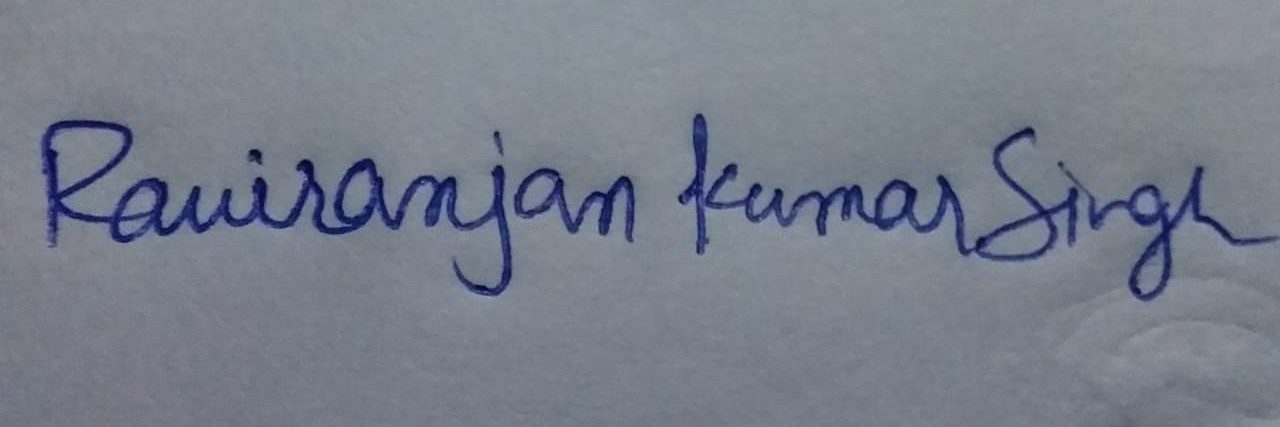 Raviranjan Kumar Singh